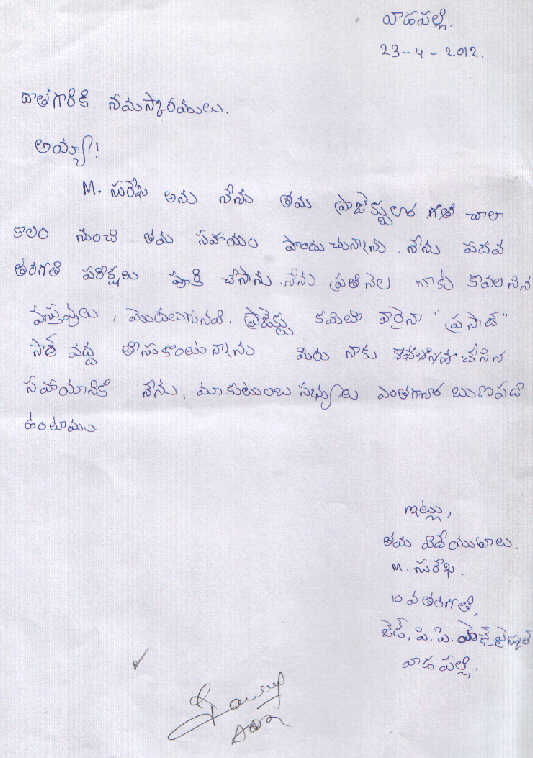 వాడపల్లి.
23-4-2012.
దాతగారికి నమస్కారములు.
అయ్యా!
M. సురేష్ అను నేను తమ ప్రాజెక్టులార గత చాలా
కాలం నుంచి తమ సహాయం పొందుచున్నాను. నేను పదవ
తరగతి పరీక్షలు పూర్తి చేసాను. నేను ప్రతినెల నాకు కావలసిన
వస్తువులు, మొదలగునవి. ప్రాజెక్టు కమిటీ వారైన "ప్రసాద్"
సార్ వద్ద తీసుకొంటున్నాను మీరు నాకు చేసిన
సహాయానికి నేను, మా కుటుంబ సభ్యులు ఎంతగానో ఋణపడి
ఉంటాము
ఇట్లు,
తమ విదేయులు.
M. సురేష్.
10 వ తరగతి,
వాడపల్లి.